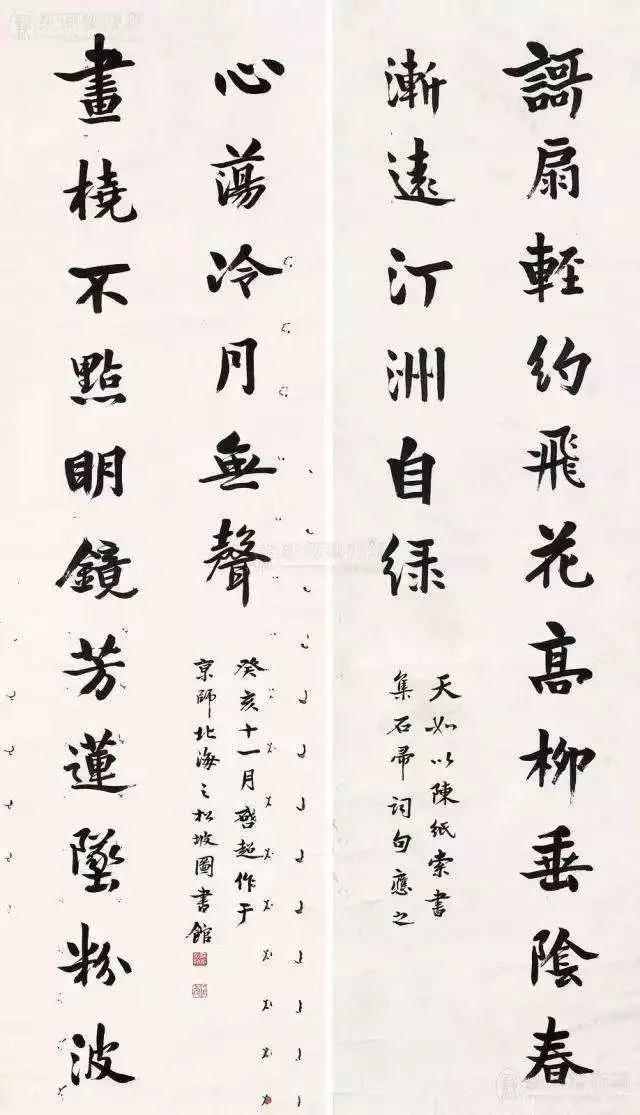 謌扇輕約飛花高柳垂陰春
漸遠汀洲自緑
天如以陳紙索書
集石帚詞句應之
畫橈不點明鏡芳蓮墜粉波
心蕩冷月無聲
癸亥十一月啓超作于
京師北海之松坡圖書館